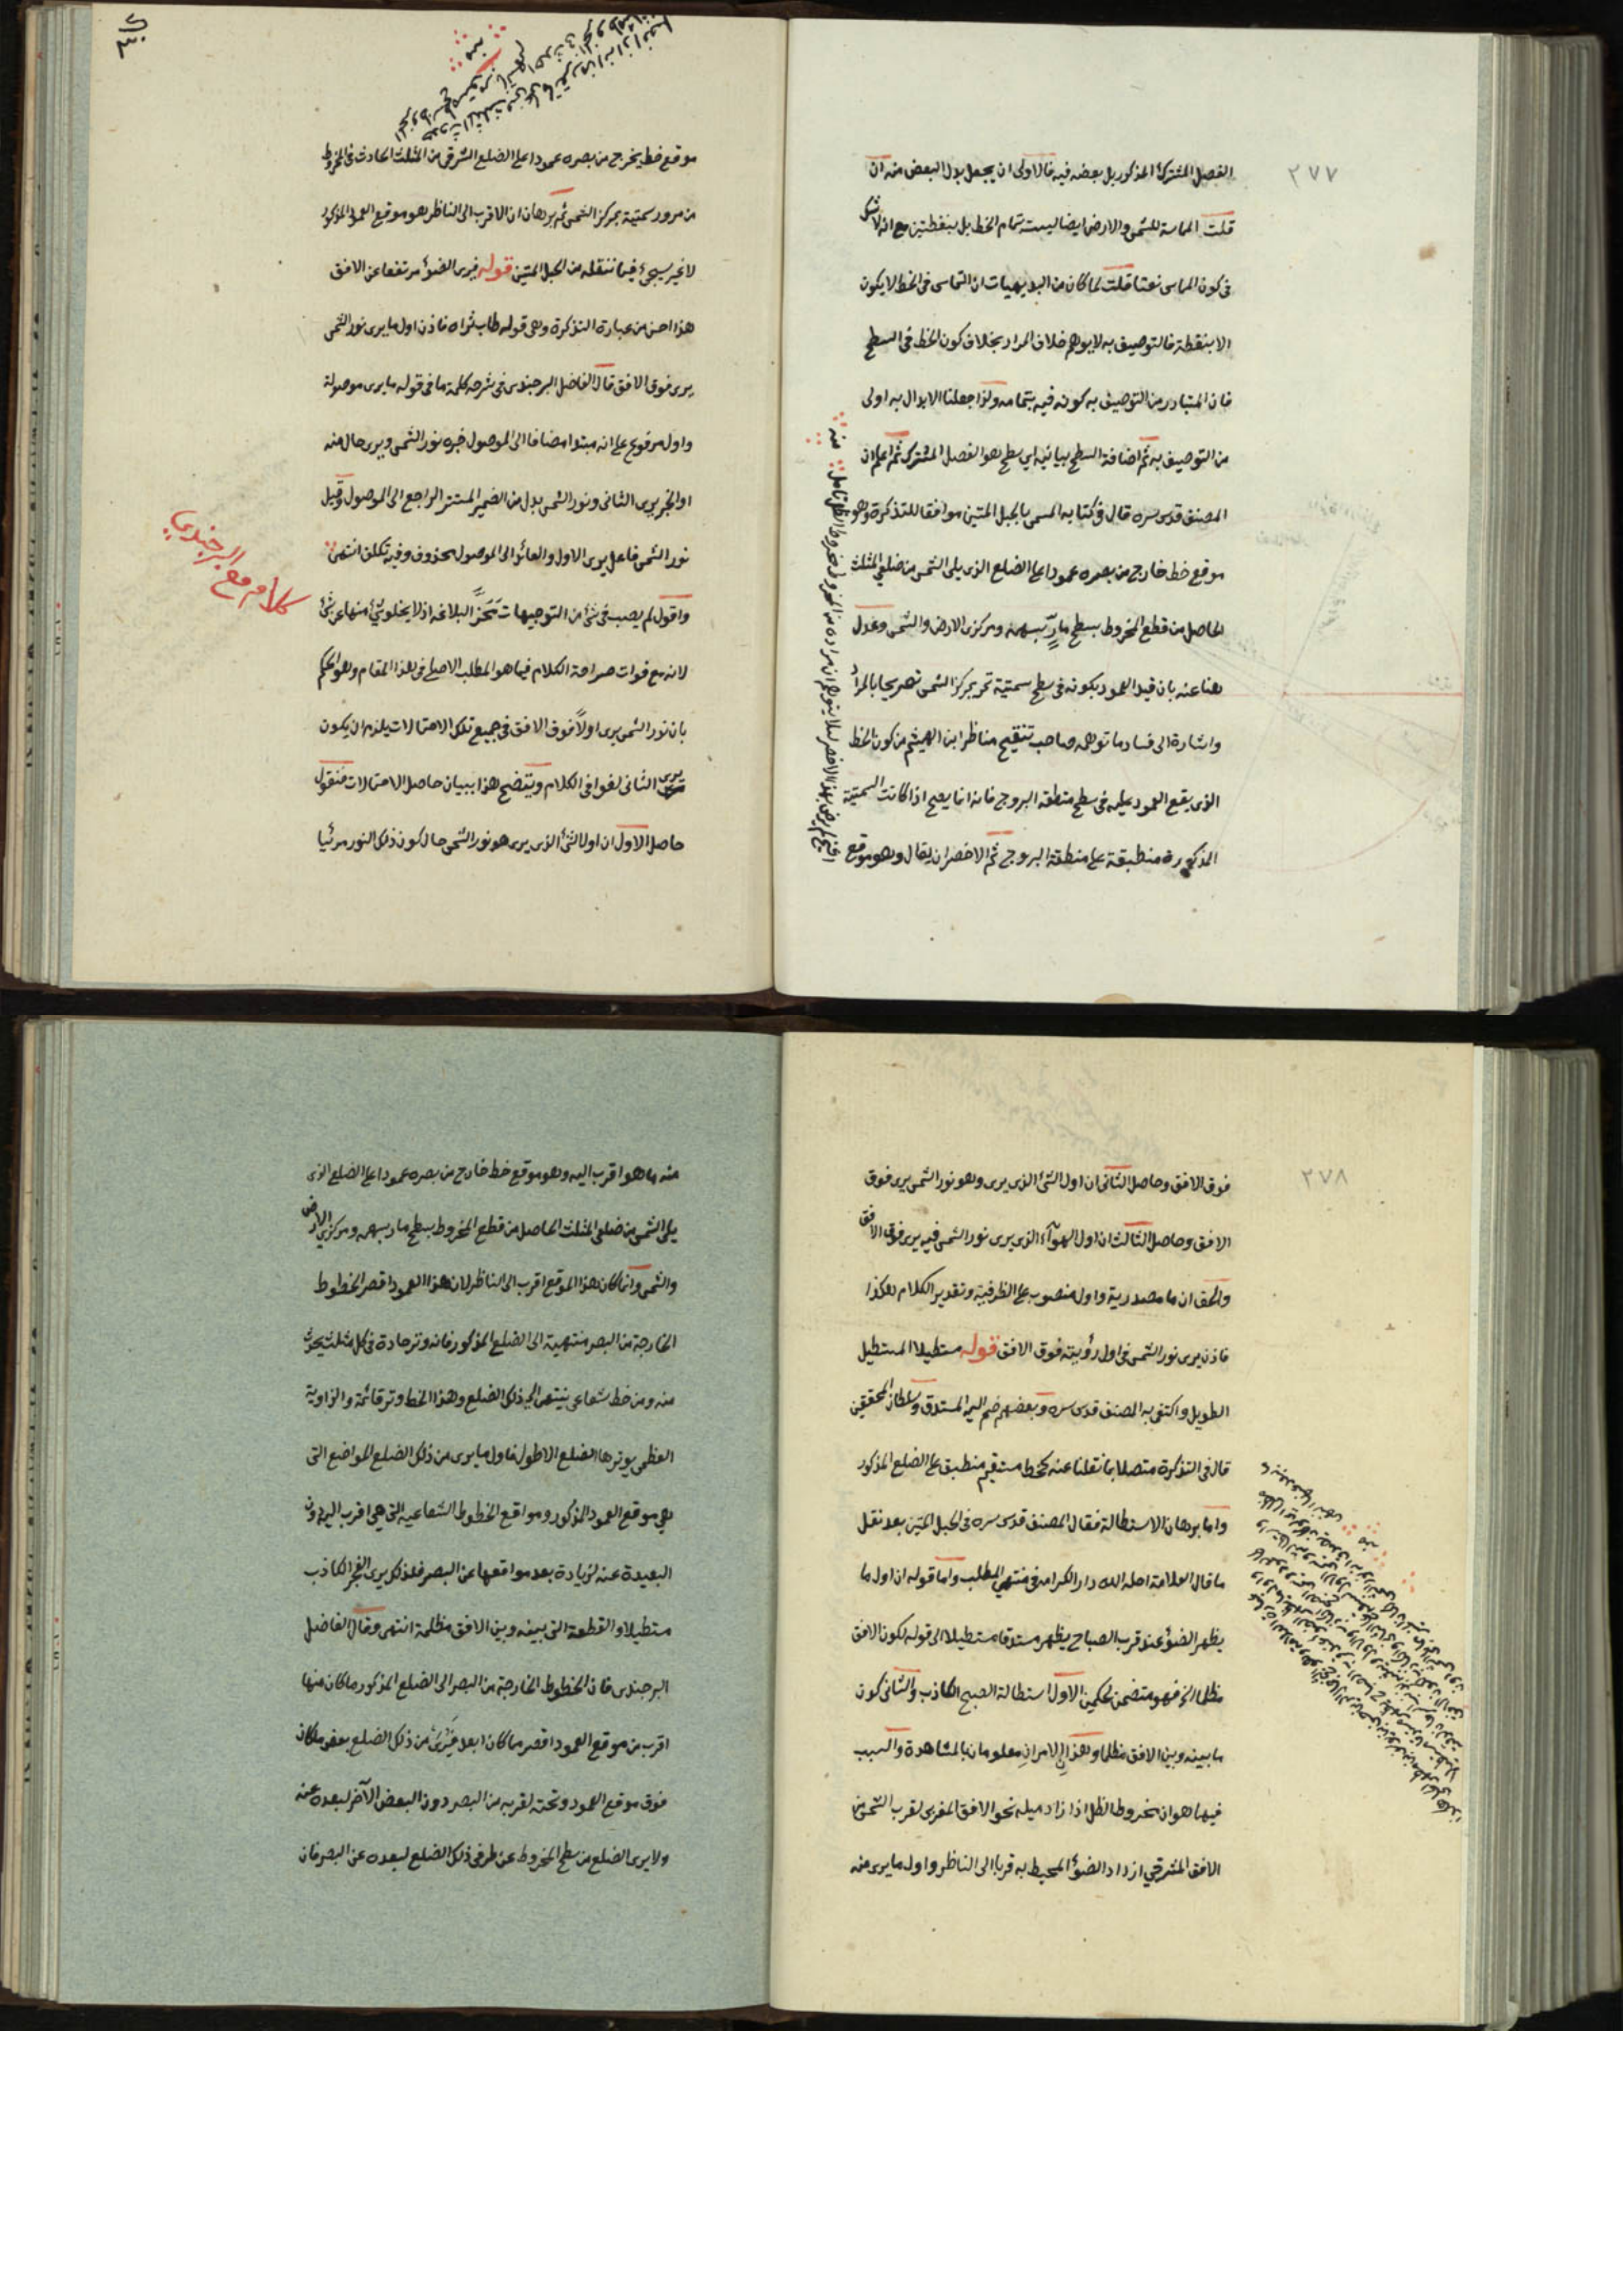 ٢٧٧
الفصل المشترك المذكور بل بعضه فيه فالاولى ان يجعل بدل البعض منه ان
قلت المماسة للشمس والارض ايضا ليست بتمام الخط بل بنقطتين مع انه لا شك
فى كون المماس نعتا قلت لما كان من البديهيات ان التماس فى الخط لا يكون
الا بنقطة فالتوصيف به لا يوهم خلاف المراد بخلاف كون الخط فى السطح
فان المتبادر من التوصيف به كونه فيه بتمامه ولذا جعلنا الابدال به اولى
من التوصيف به ثم اضافة السطح بيانية اى سطح هو الفصل المشترك ثم اعلم ان
المصنف قدس سره قال فى كتابه المسمى بالحبل المتين موافقا للتذكرة وهو
موقع خط خارج من بصره عمودا على الضلع الذى يلى الشمس من ضلعى المثلث
الحاصل من قطع المخروط بسطح مارّ بسهمه ومركزى الارض والشمس وعدل
هنا عنه بان قيد العمود بكونه فى سطح سمتية تمر بمركز الشمس تصريحا بالمراد
واشارة الى فساد ما توهمه صاحب تنقيح مناظر ابن الهيثم من كون الخط
الذى يقع العمود عليه فى سطح منطقة البروج فانه انما يصح اذا كانت السمتية
المذكورة منطبقة على منطقة البروج ثم الاخصر ان يقال وهو موقع
٣٠
موقع خط يخرج من بصره عمودا على الضلع الشرقى من المثلث الحادث فى المخروط
من مرور سمتية بمركز الشمس ثم برهان ان الاقرب الى الناظر هو موقع العمود المذكور
لا غير سيجئ فيما ننقله من الحبل المتين قوله فيرى الضوء مرتفعا عن الافق
هذا احسن من عبارة التذكرة وهى قوله طاب ثراه فاذن اول ما يرى نور الشمس
يرى فوق الافق قال الفاضل البرجندى فى شرحه كلمة ما فى قوله ما يرى موصولة
واول مرفوع على انه مبتدا مضافا الى الموصول خبره نور الشمس ويرى حال منه
او الخبر يرى الثانى ونور الشمس بدل من الضمير المستتر الراجع الى الموصول وقيل
نور الشمس فاعل يرى الاول والعائد الى الموصول محذوف وفيه تكلف انتهى
كلامه مع البرجندى
واقول لم يصب فى شئ من التوجيهات مَحَزَّ البلاغة اذ لا يخلو شئ منها عن شئ
لانه مع فوات صراحة الكلام فيما هو المطلب الاصلى فى هذا المقام وهو الحكم
بان نور الشمس يرى اولًا فوق الافق فى جميع تلك الاحتمالات يلزم ان يكون
يرى الثانى لغوا فى الكلام ويتضح هذا ببيان حاصل الاحتمالات فنقول
حاصل الاول ان اول الشئ الذى يرى هو نور الشمس حال كون ذلك النور مرئيا
٢٧٨
فوق الافق وحاصل الثانى ان اول الشئ الذى يرى وهو نور الشمس يرى فوق
الافق وحاصل الثالث ان اول الهوآء الذى يرى نور الشمس فيه يرى فوق الافق
والحق ان ما مصدرية واول منصوب على الظرفية وتقدير الكلام هكذا
فاذن يرى نور الشمس فى اول رؤيته فوق الافق قوله مستطيلا المستطيل
الطويل واكتفى به المصنف قدس سره وبعضهم ضم اليه المستدق وسلطان المحققين
قال فى التذكرة متصلا بما نقلنا عنه كخط مستقيم منطبق على الضلع المذكور
واما برهان الاستطالة فقال المصنف قدس سره فى الحبل المتين بعد نقل
ما قال العلامة احله الله دار الكرامة فى منتهى المطلب واما قوله ان اول ما
يظهر الضوء عند قرب الصباح يظهر مستدقا مستطيلا الى قوله لكون الافق
مظلما الخ فهو متضمن لحكمين الاول استطالة الصبح الكاذب والثانى كون
ما بينه وبين الافق مظلما وهذان الامران معلومان بالمشاهدة والسبب
فيهما هو ان مخروط الظل اذا زاد ميله نحو الافق المغربى لقرب الشمس من
الافق المشرقى ازداد الضوء المحيط به قربا الى الناظر واول ما يرى منه
منه ما هو اقرب اليه وهو موقع خط خارج من بصره عمودا على الضلع الذى
يلى الشمس من ضلعى المثلث الحاصل من قطع المخروط بسطح مار بسهمه ومركزى الارض
والشمس وانما كان هذا الموقع اقرب الى الناظر لان هذا العمود اقصر الخطوط
الخارجة من البصر منتهية الى الضلع المذكور فانه وتر حادة فى كل مثلث يحدث
منه ومن خط شعاعى ينتهى الى ذلك الضلع وهذا الخط وتر قائمة والزاوية
العظمى يوترها الضلع الاطول فاول ما يرى من ذلك الضلع المواضع التى
هى موقع العمود المذكور ومواقع الخطوط الشعاعية التى هى اقرب اليه دون
البعيدة عنه لزيادة بعد مواقعها عن البصر فلذلك يرى الفجر الكاذب
مستطيلا والقطعة التى بينه وبين الافق مظلمة انتهى وقال الفاضل
البرجندى فان الخطوط الخارجة من البصر الى الضلع المذكور ما كان منها
اقرب من موقع العمود اقصر مما كان ابعد فيرى من ذلك الضلع بعض ما كان
فوق موقع العمود وتحته لقربه من البصر دون البعض الآخر لبعده عنه
ولا يرى الضلع من سطح المخروط عن طرفى ذلك الضلع لبعده عن البصر فان